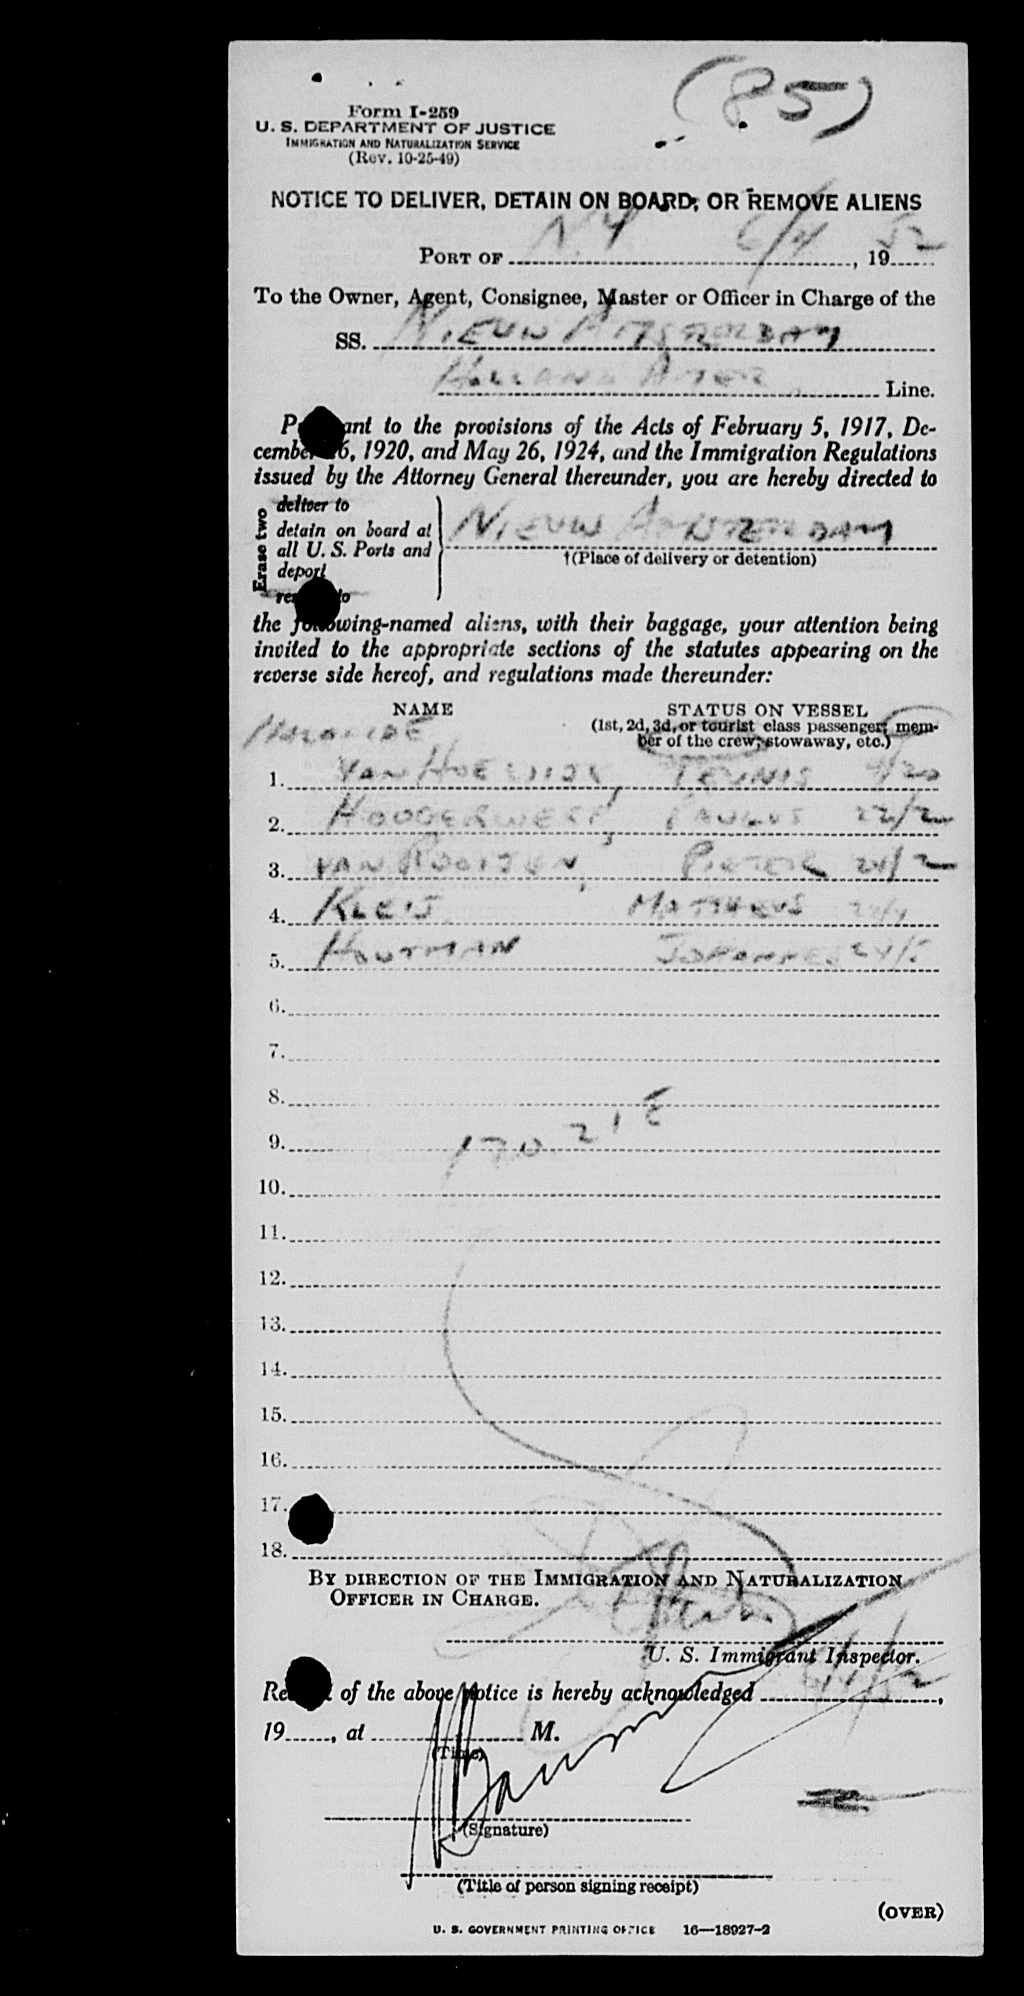 (85)
Form I-259
U. S. DEPARTMENT OF JUSTICE
IMMIGRATION AND NATURALIZATION SERVICE
(Rev. 10-25-49)
NOTICE TO DELIVER, DETAIN ON BOARD, OR REMOVE ALIENS
PORT OF N.Y 6/4, 1952
To the Owner, Agent, Consignee, Master or Officer in Charge of the
SS. NIEUW AMSTERDAM
HOLLAND AMER Line.
P ant to the provisions of the Acts of February 5, 1917, De-
cember 26, 1920, and May 26, 1924, and the Immigration Regulations
issued by the Attorney General thereunder, you are hereby directed to
Erase two
deliver to
detain on board at
all U. S. Ports and
deport
NIEUW AMSTERDAM
†(Place of delivery or detention)
the following-named aliens, with their baggage, your attention being
invited to the appropriate sections of the statutes appearing on the
reverse side hereof, and regulations made thereunder:
NAME STATUS ON VESSEL
(1st, 2d, 3d, or tourist class passenger, mem-
ber of the crew, stowaway, etc.)
1. VAN TEUNIS 4/20
2. HOOGERWERF, PAULUS 22/2
3. VAN ROOIJEN, PIETER 24/2
4. KLEIJ MATTHEUS
5. HOUTMAN JOHANNES
6.
7.
8.
9.
10.
11.
12.
13.
14.
15.
16.
17.
18.
BY DIRECTION OF THE IMMIGRATION AND NATURALIZATION
OFFICER IN CHARGE.
U. S. Immigrant Inspector.
Re of the above notice is hereby acknowledged 6/4/52,
19, at M.
(Time)
(Signature)
(Title of person signing receipt)
(OVER)
U. S. GOVERNMENT PRINTING OFFICE 16—18927-2